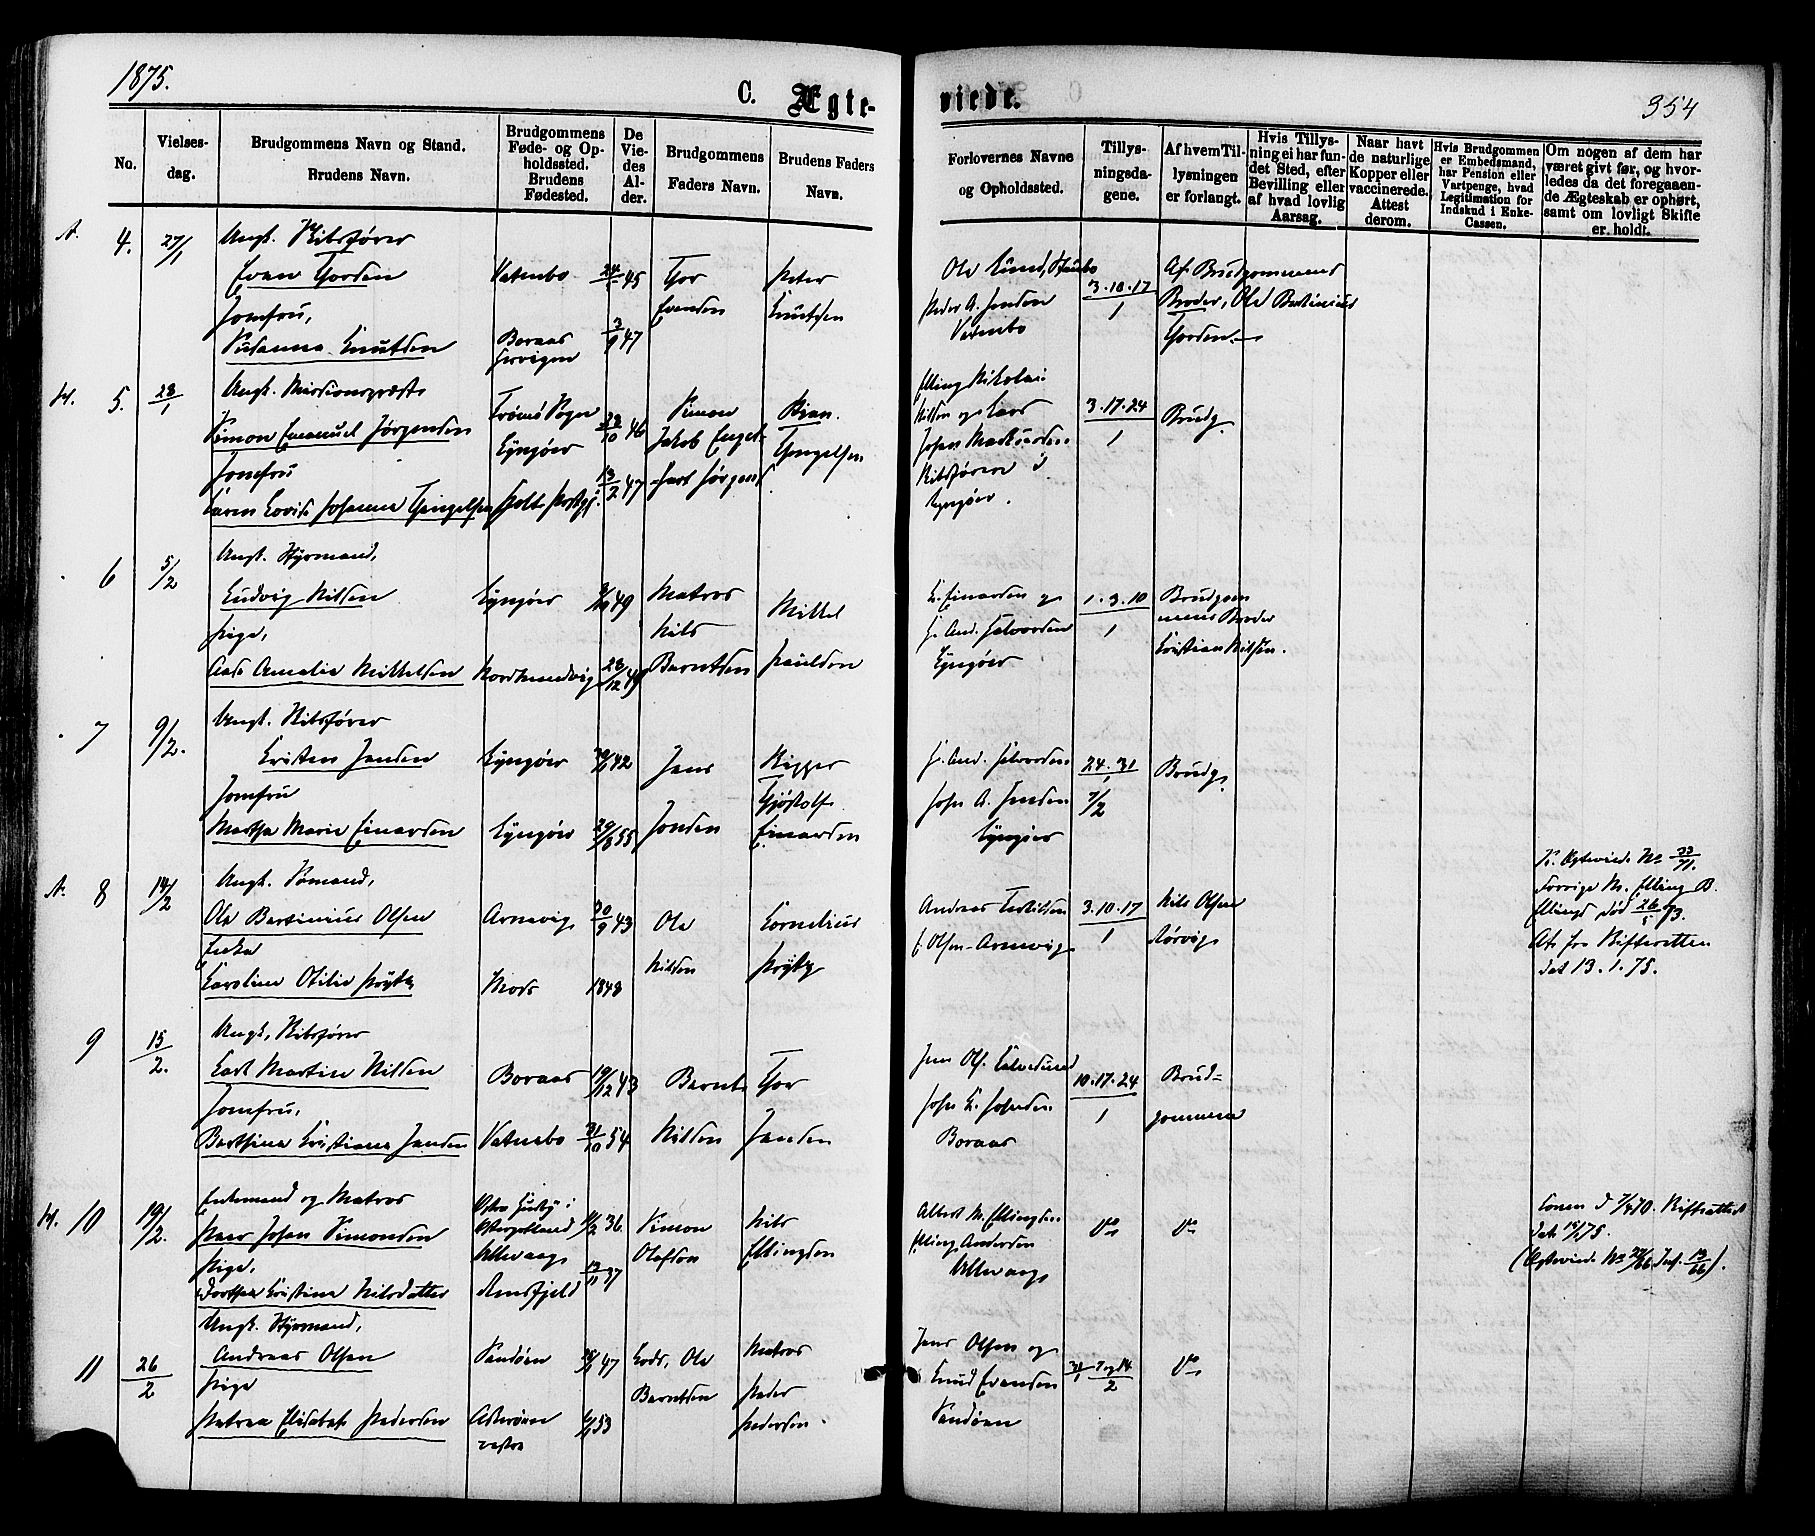 1875.
C. Ægte-
viede.
354
No.
Vielses-
dag.
Brudgommens Navn og Stand.
Brudens Navn.
Brudgommens
Føde- og Op-
holdssted.
Brudens
Fødested.
De
Vie-
des
Al-
der.
Brudgommens
Faders Navn.
Brudens Faders
Navn.
Forlovernes Navne
og Opholdssted.
Tillys-
ningsda-
gene.
Af hvem Til-
lysningen
er forlangt.
Hvis Tillys-
ning ei har fun-
det Sted, efter
Bevilling eller
af hvad lovlig
Aarsag.
Naar havt
de naturlige
Kopper eller
vaccinerede.
Attest
derom.
Hvis Brudgommen
er Embedsmand,
har Pension eller
Vartpenge, hvad
Legitimation for
Indskud i Enke-
Cassen.
Om nogen af dem har
været givt før, og hvor-
ledes da det foregaaen-
de Ægteskab er ophørt,
samt om lovligt Skifte
er holdt.
4. 27/1
Ungk. Skibsfører
Even Thorsen
Jomfru,
Susanna Knutsen
Vatnebo
Boraas
45
3/9 47
Thor
Evensen
Peter
Knutsen
Ole Lund,
Peder A. Jensen
Vatnebo
3.10.17
1
Af Brudgommens
Broder, Ole Bertinius
Thorsen
5. 28/1
Ungk. Missionspræst
Simon Emanuel Jørgensen
Jomfru
Karen Lovise Johanne Thengelsen
Tromø Sogn
Lyngøer
Holt Prstgj.
46
13/2 47
Simon
Jakob Engel-
hart Jørgens
Thengelsen
Elling Nikolai
Nilsen og Lars
Johan Markussen
Skibsførere i
Lyngøer.
3.17.24
1
Brudg.
6 5/2
Ungk. Styrmand,
Ludvig Nilsen
Pige,
Aase Amalie Mikkelsen
Lyngøer
49
28/12 49
Matros
Nils
Berntsen
Mikkel
Paulsen
L. Einarsen og
J. And. Halvorsen
Lyngøer
1.3.10
1
Brudgom
mens Broder
Kristian Nilsen.
7 9/2.
Ungk. Skibsfører
Kristen Jensen
Jomfru
Marthe Marie Einarsen
Lyngøer
Lyngøer
42
29/8 55
Jens
Jensen
Skipper
Gjøstolf
Einarsen
J. And. Halvorsen
John A. Jensen
Lyngøer
24.31
1
7/2
Brudg.
8 14/2
Ungk. Sømand,
Ole Bertinius Olsen
Enke
Karoline Otilie Prytz
Arnevig
Mors
30/9 43
1848
Ole
Nilsen
Kornelius
Prytz
Andreas Terkilsen
J. Olsen Arnevig
3.10.17
1
Nils Olsen
Rørvig
S. Egteviede No 33/71.
Forrige M. Elling B.
Ellings død 26/5 73.
At. fra Skifteretten
dat 13.1.75.
9 15/2.
Ungk. Skibsfører
Karl Martin Nilsen
Jomfru,
Berthine Kristiane Jensen
Boraas
Vatnebo
19/12 43
31/10 54
Bernt
Nilsen
Thor
Jensen
Jens Ol.
John L. Johnsen
Boraas
10.17.24
1
Brud-
gommen
10 19/2.
Enkemand og Matros
Peer Johan Simonsen
Pige,
Dorthea Kristine Nilsdatter
Østra Husby i
Østergotland
Ulevaag
36
37
Simon
Olofson
Nils
Ellingsen
Albert M. Ellingsen
Elling Andersen
Ulevaag
Do
Do
Konen d 70. Skifteattest
dat 75.
11 26/2
Ungk. Styrmand,
Andreas Olsen
Pige
Petrea Elisabet Pedersen
Sandøen
Askerøen
vestre
47
53
Lods, Ole
Berntsen
Matros
Peder
Pedersen.
Jens Olsen og
Knud Evensen
Sandøen
31/1 7 og 14/2
Do